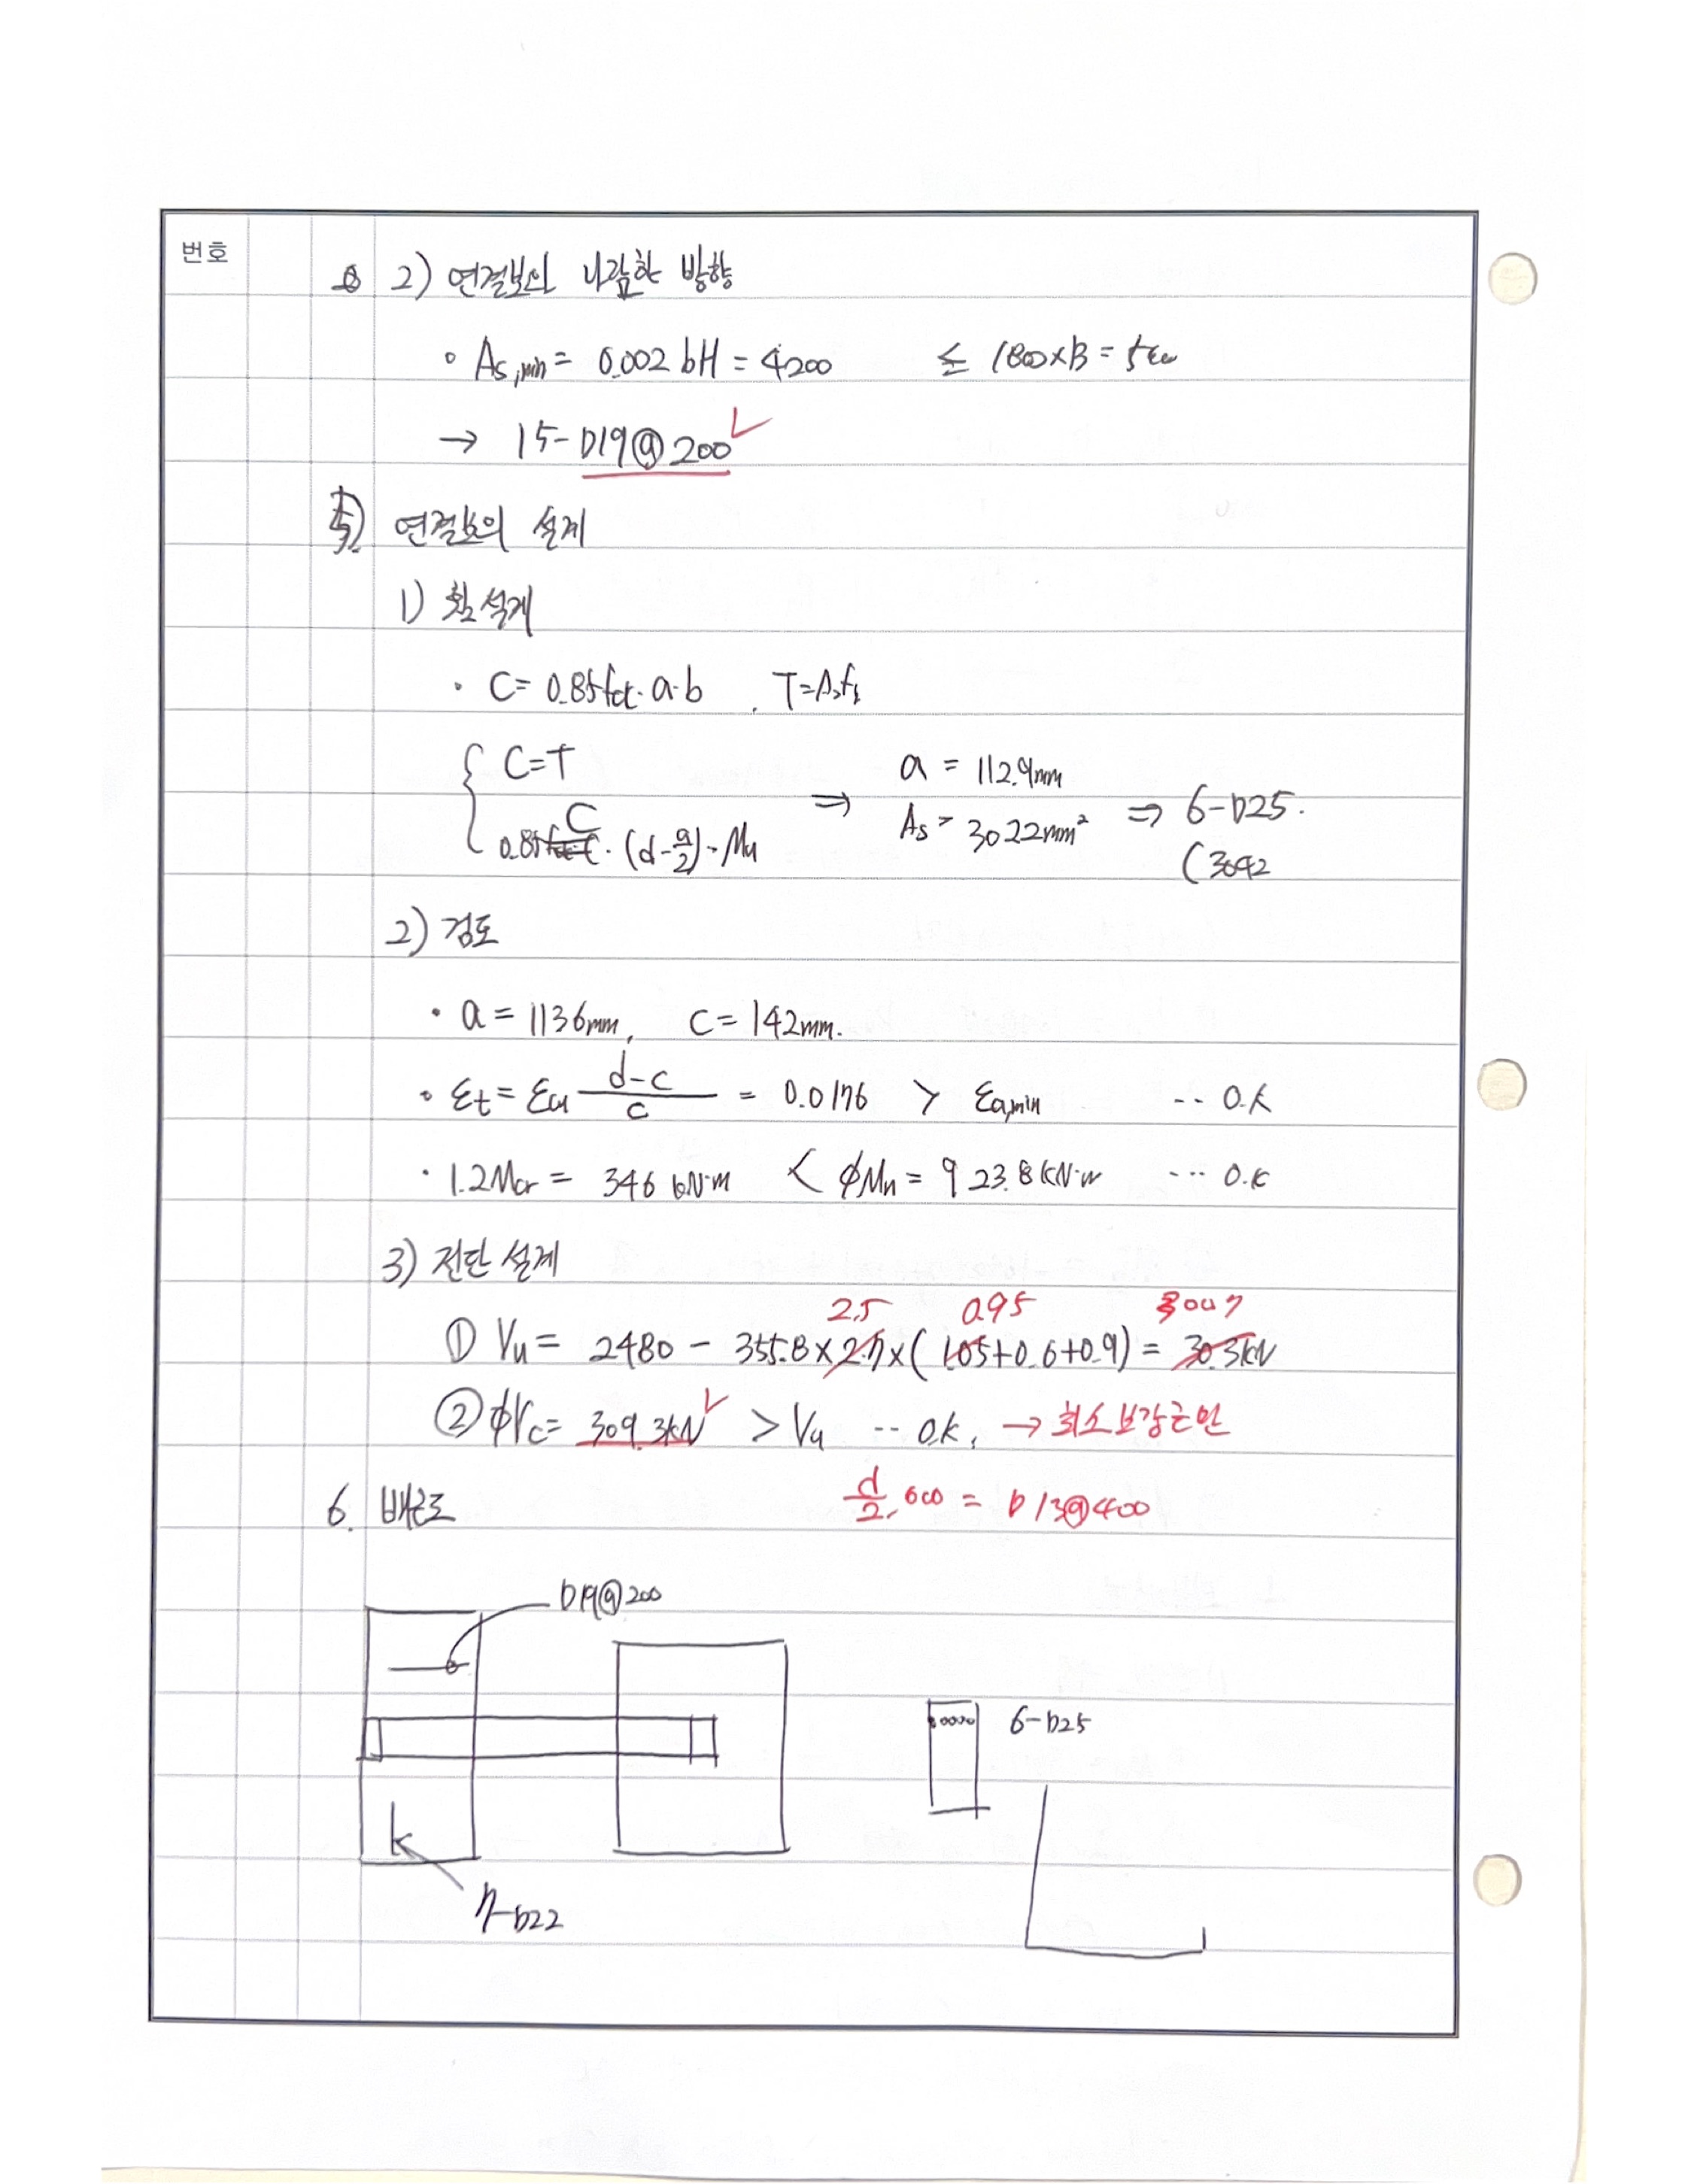 번호
2) 연결보와 나란한 방향
∘ As,min = 0.002 bH = 4200 ≤ 1800×B =
→ 15-D19@200 ✓
5) 연결보의 설계
1) 휨설계
· C = 0.85fck·a·b , T=Asfy
C=T
C·(d-a/2) = Mu
⇒ a = 112.9mm
As = 3022mm² ⇒ 6-D25.
(3042
2) 검토
· a = 113.6mm, c = 142mm.
∘ εt = εcu (d-c)/c = 0.0176 > εa,min -- O.K
· 1.2Mcr = 346 kN·m < φMn = 923.8 kN·m ··· O.K
3) 전단 설계
2.5 0.95
① Vu = 2480 - 355.8×2.7×(1.05+0.6+0.9) = 30.3kN
② φVc = 309.3kN ✓ > Vu -- O.K, → 최소보강근만
d/2, 600 = D13@400
6. 배근도
D19@200
6-D25
7-D22